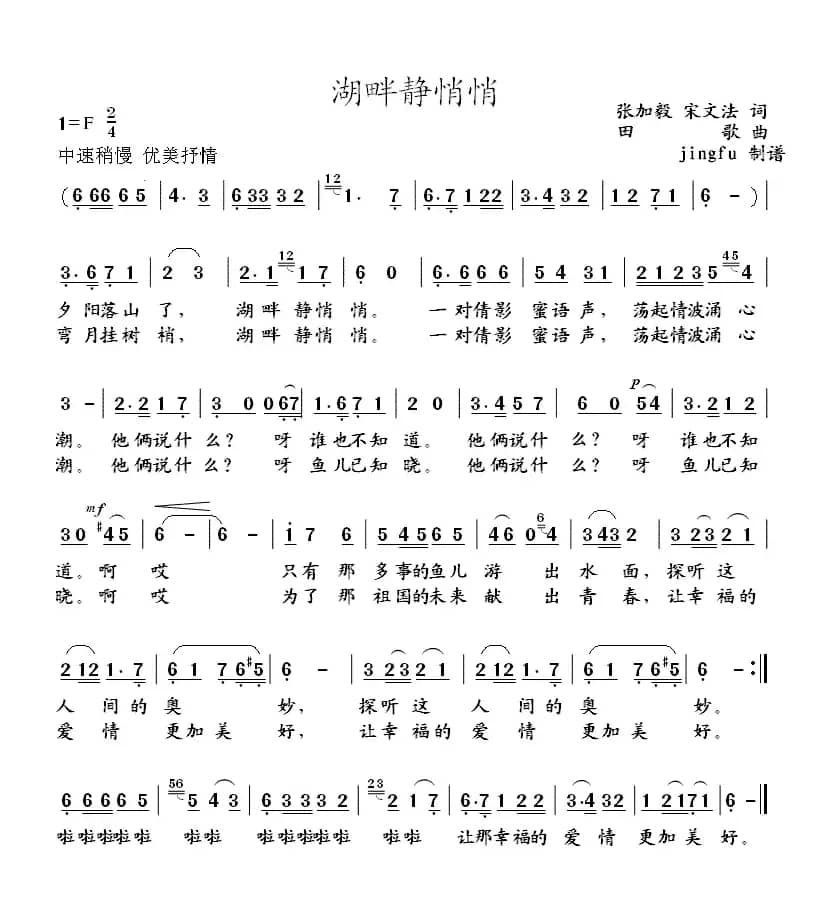 湖畔静悄悄
1=F 2/4
张加毅 宋文法 词
田 歌 曲
中速稍慢 优美抒情
jingfu 制谱
(6 66 6 5 | 4· 3 | 6 33 3 2 | 12 1· 7 | 6·7 1 22 | 3·4 3 2 | 1 2 7 1 | 6 - ) |
3·6 7 1 | 2 3 | 2·1 12 1 7 | 6 0 | 6·6 6 6 | 5 4 3 1 | 2 1 2 3 5 45 4 |
夕阳落山了， 湖畔静悄悄。 一对倩影蜜语声， 荡起情波涌心
弯月挂树梢， 湖畔静悄悄。 一对倩影蜜语声， 荡起情波涌心
p
3 - | 2·2 1 7 | 3 0 0 67 | 1·6 7 1 | 2 0 | 3·4 5 7 | 6 0 54 | 3·2 1 2 |
潮。他俩说什么？ 呀谁也不知道。他俩说什么？ 呀谁也不知
潮。他俩说什么？ 呀鱼儿已知晓。他俩说什么？ 呀鱼儿已知
mf
3 0 #4 5 | 6 - | 6 - | i 7 6 | 5 4 5 6 5 | 4 6 0 6 4 | 3 4 3 2 | 3 2 3 2 1 |
道。啊哎 只有那多事的鱼儿游出水面，探听这
晓。啊哎 为了那祖国的未来献出青春，让幸福的
2 12 1· 7 | 6 1 7 6 #5 | 6 - | 3 2 3 2 1 | 2 12 1· 7 | 6 1 7 6 #5 | 6 - :||
人间的奥妙， 探听这人间的奥妙。
爱情更加美好， 让幸福的爱情更加美好。
6 6 6 6 5 | 56 5 4 3 | 6 3 3 3 2 | 23 2 1 7 | 6·7 1 2 2 | 3·4 3 2 | 1 2 1 7 1 | 6 - ||
啦啦啦啦啦 啦啦 啦啦啦啦啦 啦啦 让那幸福的爱情更加美好。